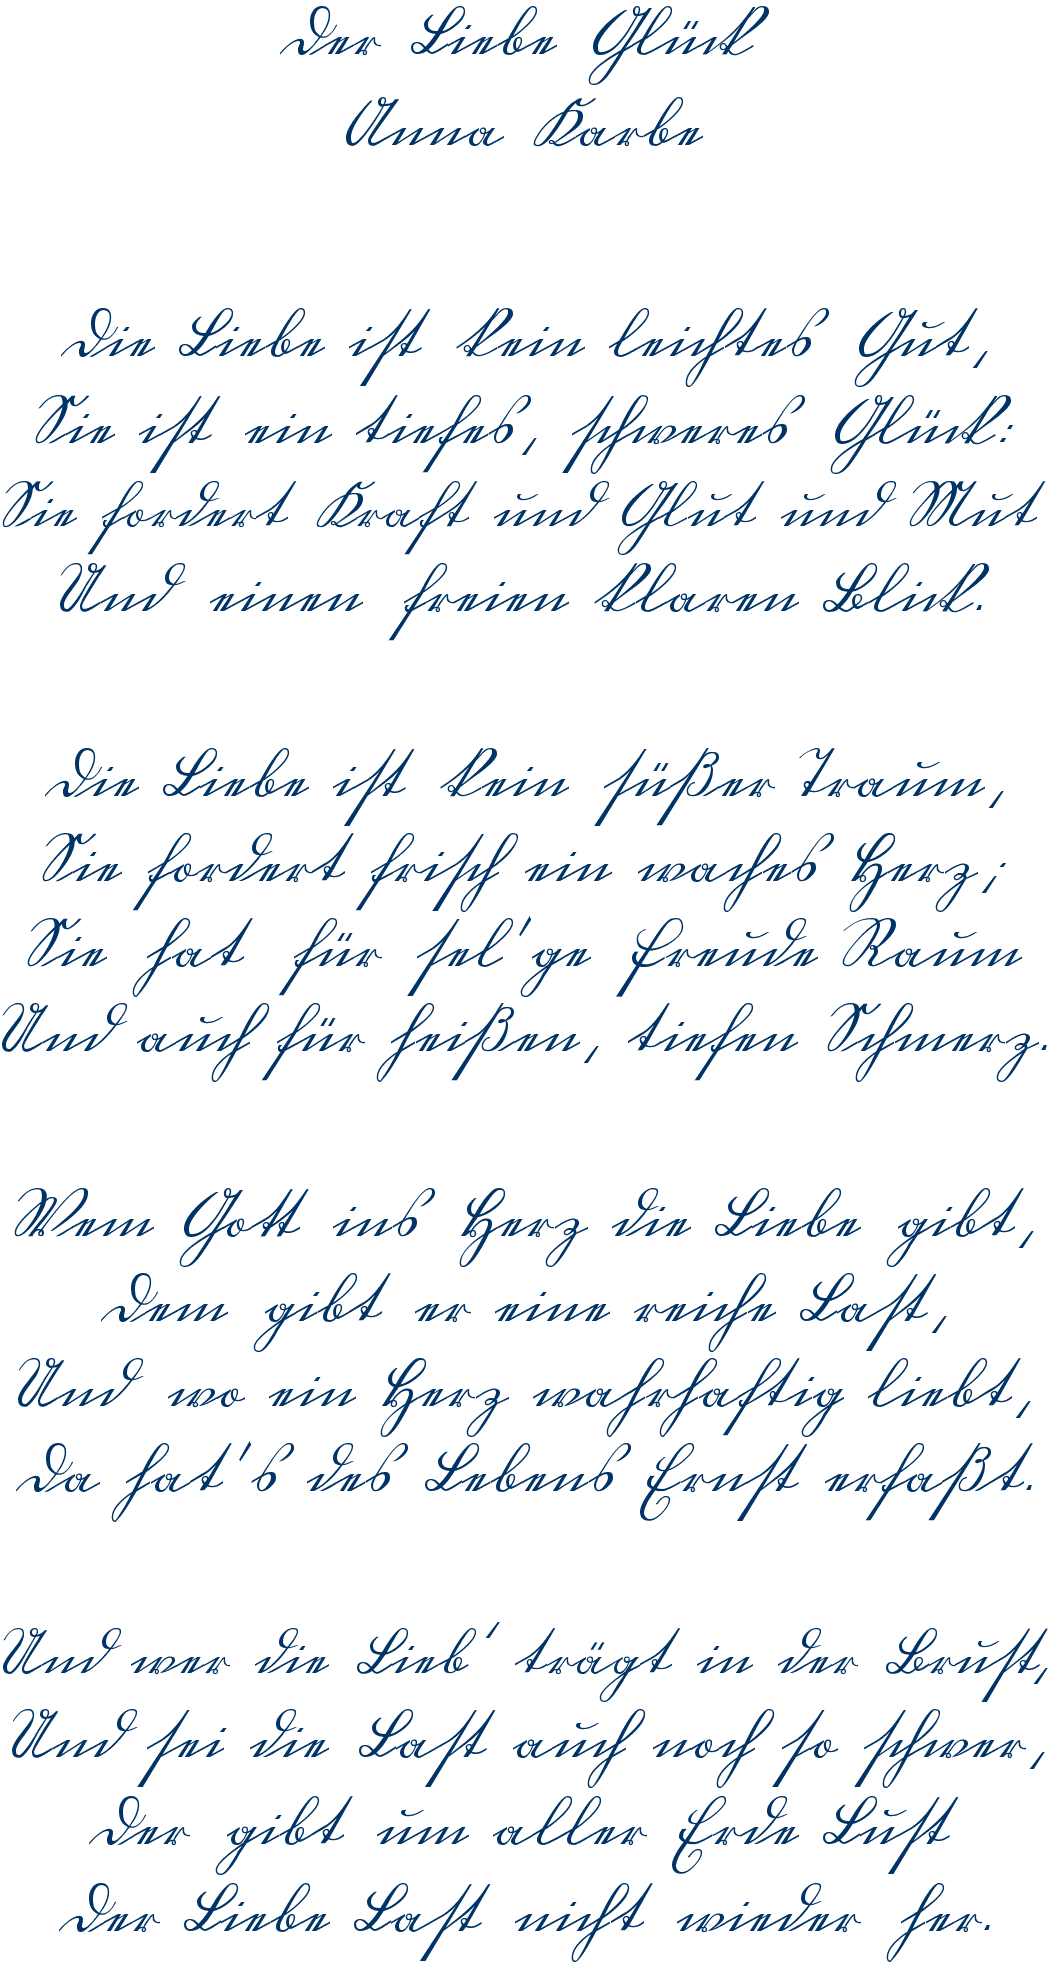 Der Liebe Glück
Anna Karbe
Die Liebe ist kein leichtes Gut,
Sie ist ein tiefes, schweres Glück:
Sie fordert Kraft und Glut und Mut
Und einen freien klaren Blick.
Die Liebe ist kein süßer Traum,
Sie fordert frisch ein waches Herz;
Sie hat für sel'ge Freude Raum
Und auch für heißen, tiefen Schmerz.
Wem Gott ins Herz die Liebe gibt,
Dem gibt er eine reiche Last,
Und wo ein Herz wahrhaftig liebt,
Da hat's des Lebens Ernst erfaßt.
Und wer die Lieb' trägt in der Brust,
Und sei die Last auch noch so schwer,
Der gibt um aller Erde Lust
Der Liebe Last nicht wieder her.